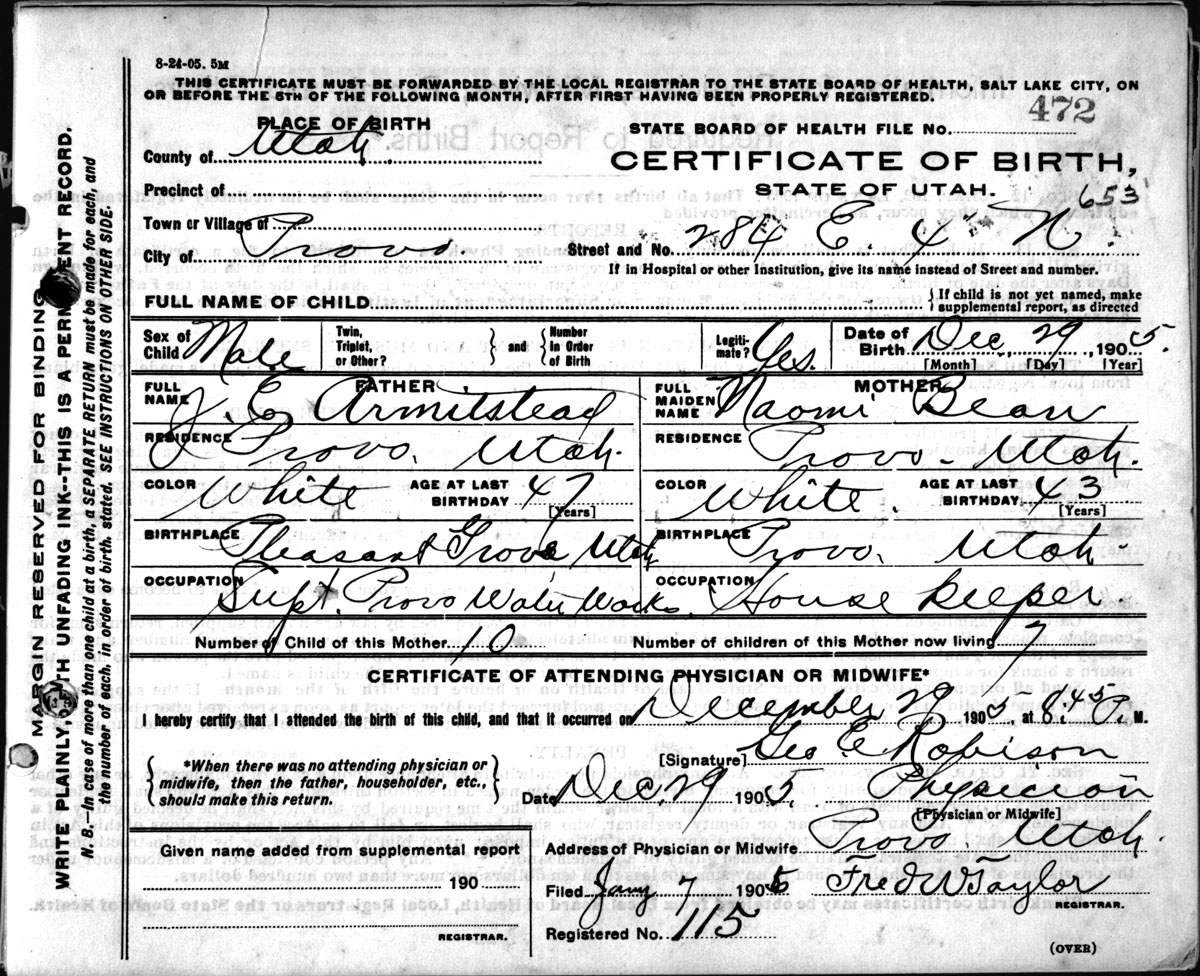 8-24-05. 5M
THIS CERTIFICATE MUST BE FORWARDED BY THE LOCAL REGISTRAR TO THE STATE BOARD OF HEALTH, SALT LAKE CITY, ON
OR BEFORE THE 5TH OF THE FOLLOWING MONTH, AFTER FIRST HAVING BEEN PROPERLY REGISTERED.
472
PLACE OF BIRTH
STATE BOARD OF HEALTH FILE NO.
County of Utah
CERTIFICATE OF BIRTH,
Precinct of
STATE OF UTAH.
653
Town or Village of
City of Provo.
Street and No. 284 E. 4 N.
If in Hospital or other Institution, give its name instead of Street and number.
FULL NAME OF CHILD
{ If child is not yet named, make supplemental report, as directed
Sex of Child Male
Twin, Triplet, or Other? } and { Number in Order of Birth
Legitimate? Yes.
Date of Birth Dec. 29, 1905.
[Month] [Day] [Year]
FATHER
FULL NAME J. E. Armitstead
RESIDENCE Provo. Utah.
COLOR White AGE AT LAST BIRTHDAY 47 [Years]
BIRTHPLACE Pleasant Grove Utah
OCCUPATION Supt. Provo Water Works.
MOTHER
FULL MAIDEN NAME Naomi Bean
RESIDENCE Provo. Utah.
COLOR White. AGE AT LAST BIRTHDAY 43 [Years]
BIRTHPLACE Provo. Utah.
OCCUPATION House Keeper
Number of Child of this Mother 10 Number of children of this Mother now living 7
CERTIFICATE OF ATTENDING PHYSICIAN OR MIDWIFE*
I hereby certify that I attended the birth of this child, and that it occurred on December 29 1905 at 8.45 P. M.
[Signature] Geo E Robison
{ *When there was no attending physician or midwife, then the father, householder, etc., should make this return. }
Date Dec. 29 1905. Physician
[Physician or Midwife]
Given name added from supplemental report
Address of Physician or Midwife Provo Utah.
190
Filed Jany 7 1906 Fred W Taylor
REGISTRAR.
REGISTRAR.
Registered No. 115
(OVER)
MARGIN RESERVED FOR BINDING
WRITE PLAINLY, WITH UNFADING INK--THIS IS A PERMANENT RECORD.
N. B.--In case of more than one child at a birth, a SEPARATE RETURN must be made for each, and
the number of each, in order of birth, stated. SEE INSTRUCTIONS ON OTHER SIDE.